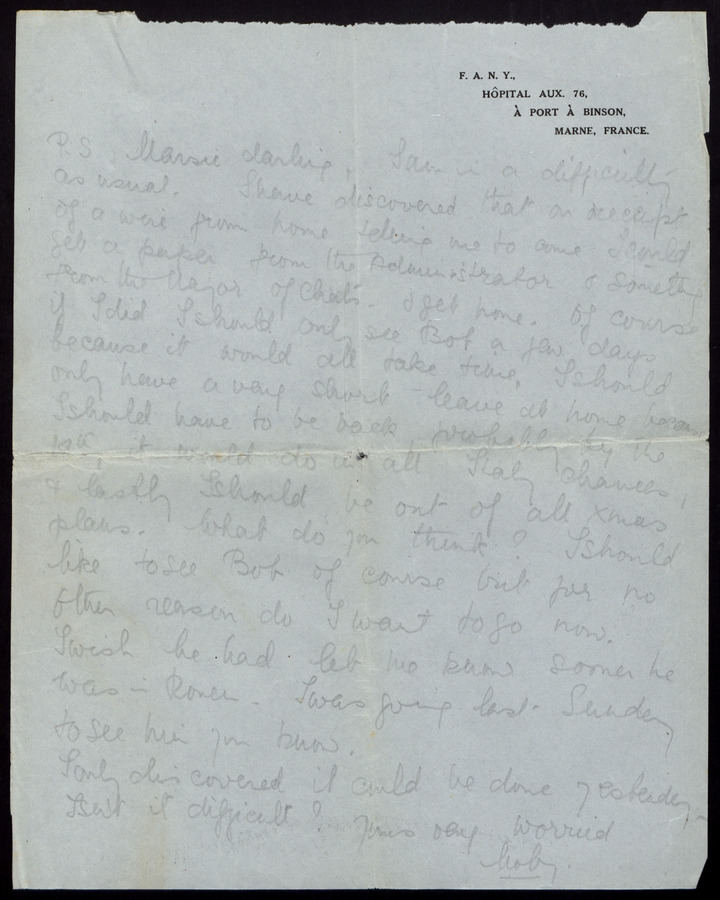 F. A. N. Y.,
HÔPITAL AUX. 76,
À PORT À BINSON,
MARNE, FRANCE.
P.S. darling, I am in a difficulty
as usual. I have discovered that on receipt
of a wire from home telling me to come I could
get a paper from the Administrator & something
from the Major of - & get home. Of course
if I did I should only see Bob a few days
because it would all take time, I should
only have a very short leave at home because
I should have to be back probably by the
it would do in all Italy chances,
& lastly I should be out of all Xmas
plans. What do you think? I should
like to see Bob of course but for no
other reason do I want to go now.
I wish he had let me know sooner he
was in Rouen. I was going last Sunday
to see him you know.
I only discovered it could be done yesterday -
Isn't it difficult? Yours very worried